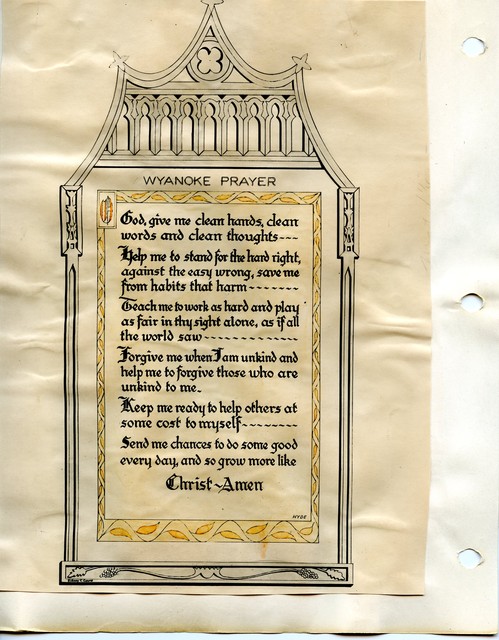 WYANOKE PRAYER
O God, give me clean hands, clean
words and clean thoughts---
Help me to stand for the hard right,
against the easy wrong, save me
from habits that harm-------
Teach me to work as hard and play
as fair in thy sight alone, as if all
the world saw-------------
Forgive me when I am unkind and
help me to forgive those who are
unkind to me-
Keep me ready to help others at
some cost to myself--------
Send me chances to do some good
every day, and so grow more like
Christ-Amen
HYDE